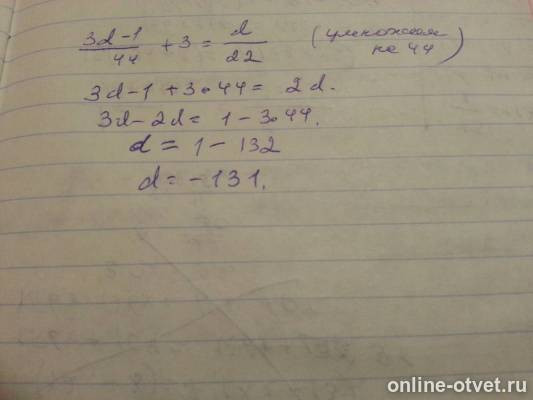 3d-1/44 + 3 = d/22 (умножаем на 44)
3d-1 + 3•44 = 2d.
3d-2d = 1-3•44.
d = 1-132
d = -131.
online-otvet.ru